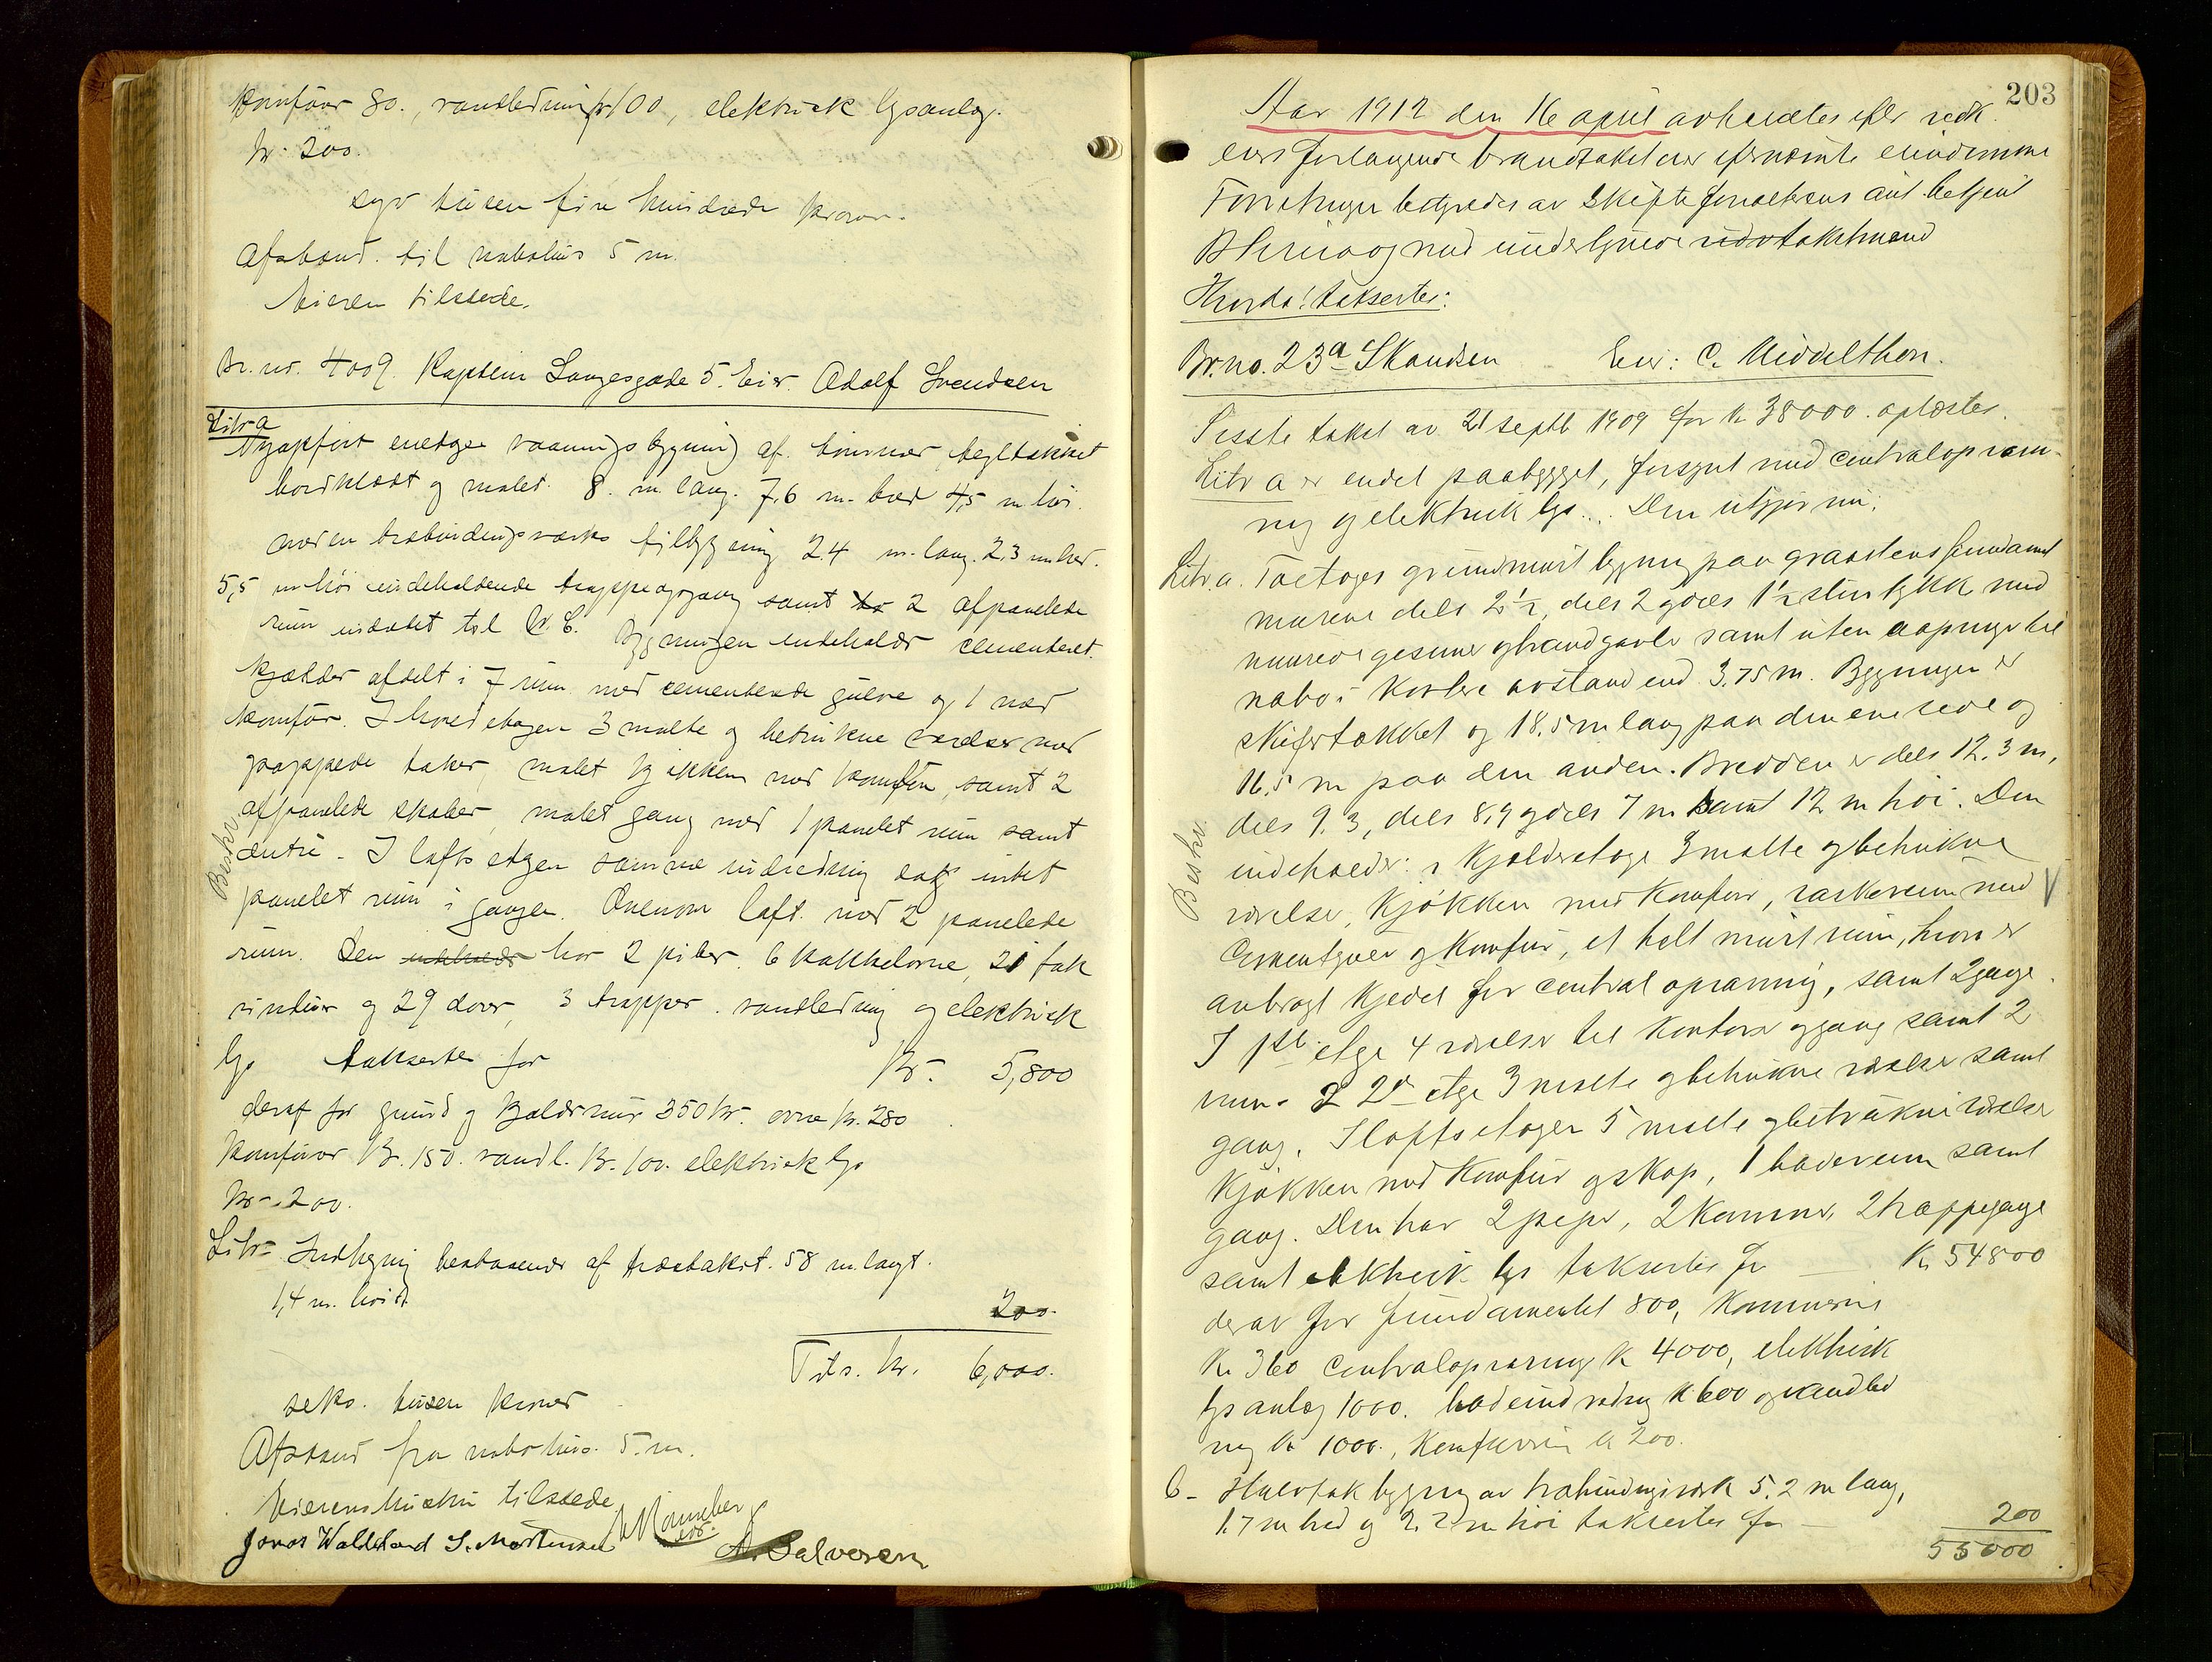 komfurer 80., vandledning kr 100, elektrisk lysanlæg.
kr. 200.
syv tusen fire hundrede kroner.
Afstand. til nabohus 5 m.
Eieren tilstede.
Br. nr. 4009. Kaptein Langesgade 5. Eier. Adolf Svendsen
Litr a
Nyopført enetages vaaningsbygning af tømmer, tegltækket
bordklædt og malet. 8. m. lang. 7.6 m. bred 4,5 m høi.
med en træbindingsværks tilbygning 2.4 m. lang. 2.3 m bred.
5,5 m høi indeholdende trappeopgang samt 2 afpanelede
rum indredet til W. C. Bygningen indeholder cementeret
kjælder afdelt i 7 rum med cementerede gulve og 1 med
komfur. I hovedetagen 3 malte og betrukne værelser med
pappede taker, malet kjøkken med komfur, samt 2
afpanelede skaber, malet gang med 1 panelet rum samt
entré. I loftsetagen samme indredning dog intet
panelet rum i gangen. Ovenom loft med 2 panelede
rum. Den indeholder har 2 piber. 6 kakkelovne, 21 fak
vinduer og 29 dører, 3 trapper. vandledning og elektrisk
lys takseres for Kr. 5,800
deraf for grund og kjældermur 350 kr. ovne kr. 280
komfurer Kr. 150. vandl. Kr. 100. elektrisk lys
kr. 200.
Litr Indhegning bestaaende af træstakit. 58 m. langt.
1,4 m. høit
200.
Tils. kr. 6,000.
seks. tusen kroner
Afstand fra nabohus. 5. m.
Eierens hustru tilstede
Jonas Waldeland S. Mortensen
A. Salvesen
Beskr.
203
Aar 1912 den 16 april avholdtes efter vedk.
eiers forlangende brandtakst over efternævnte eiendomme
Forretningen betjentes av Skifteforvalterens aut. betjent
og med underskrevne takstmænd
Hvorda! takseres:
Br. no. 23a Skandsen Eier: C. Middelthon.
Sidste takst av 21 septb 1909 for kr 38000. oplæstes.
Litr a er endel paabygget, forsynt med centralopvarm-
ning og elektrisk lys. Den utgjør nu:
Litr a. Toetages grundmurt bygning paa graastens fundament
murene dels 2½, dels 2 og dels 1½ sten tykk med
murede gesimer og brandgavle samt uten aapninger til
nabo i kortere avstand end 3.75 m. Bygningen er
skifertækket og 18.5 m lang paa den ene side og
16.5 m paa den anden. Bredden er dels 12.3 m,
dels 9.3, dels 8,9 og dels 7 m samt 12 m høi. Den
indeholder: i kjælderetage 3 malte og betrukne
værelser, kjøkken med komfur, vaskerum med
Cementgulv og komfur, et helt murt rum, hvor er
anbragt kjedel for central opvarmning, samt 2 gange.
I 1ste etage 4 værelser til kontorer og gang samt 2
rum. I 2den etage 3 malte og betrukne værelser samt
gang. I loftsetagen 5 malte og betrukne værelser
kjøkken med komfur og skap, 1 baderum samt
gang. Den har 2 piper, 2 kaminer, 2 trappegange
samt elektrisk lys takseres for Kr 54800
derav for fundamentet 800, kaminerne
kr 360 centralopvarmning kr 4000, elektrisk
lysanlæg 1000. badeindredning kr 600 og vandled
ning kr 1000., komfurerne kr 200.
b - Halvtak bygning av træbindingsverk 5.2 m lang,
1.7 m bred og 2.2 m høi takseres for 200
55000
Beskr.